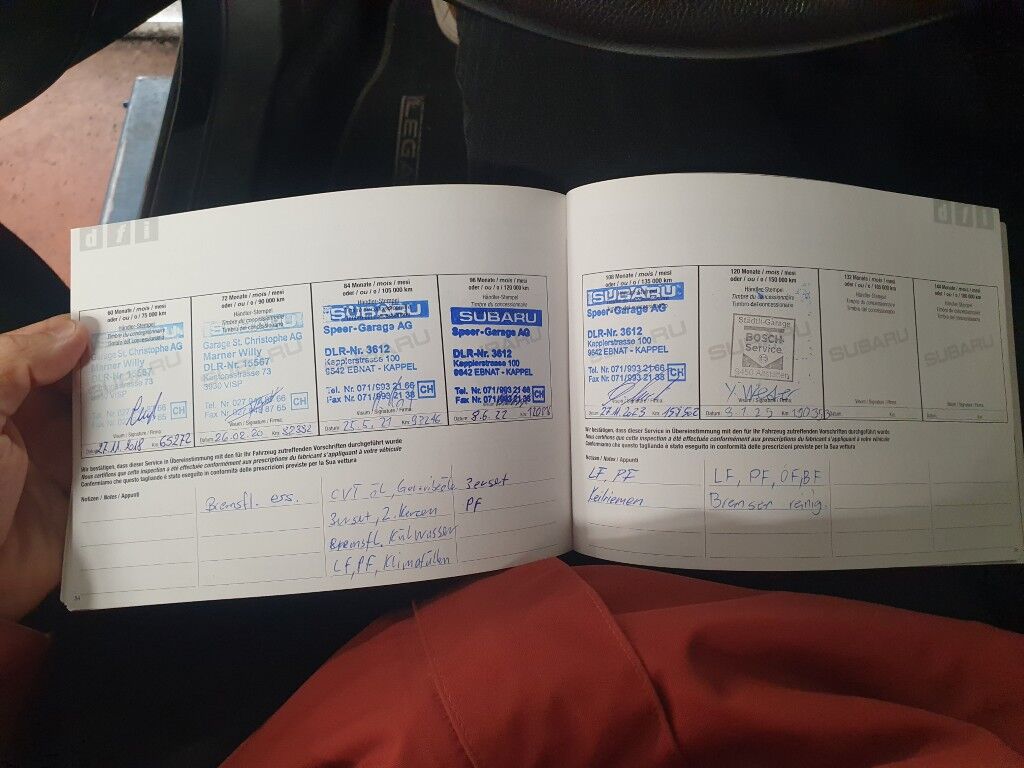 LEGA
dfi
60 Monate / mois / mesi
oder / ou / o / 75 000 km
Händler-Stempel
Timbre du concessionnaire
Timbro dell concessionario
Garage St. Christophe AG
Marner Willy
DLR-Nr. 15567
Kantonsstrasse 73
3930 VISP
Visum / Signature / Firma
Datum 27.11.2018 Km 65272
72 Monate / mois / mesi
oder / ou / o / 90 000 km
Händler-Stempel
Timbre du concessionnaire
Garage St. Christophe AG
Marner Willy
DLR-Nr. 15567
Kantonsstrasse 73
3930 VISP
CH
Visum / Signature / Firma
Datum 26.02.20 Km 82352
84 Monate / mois / mesi
oder / ou / o / 105 000 km
Händler-Stempel
SUBARU
Speer-Garage AG
DLR-Nr. 3612
Kapplerstrasse 100
9642 EBNAT - KAPPEL
Tel. Nr. 071/993 21 66
Fax Nr. 071/993 21 38
CH
Visum / Signature / Firma
Datum 25.5.21 Km 97246
96 Monate / mois / mesi
oder / ou / o / 120 000 km
Händler-Stempel
SUBARU
Speer-Garage AG
DLR-Nr. 3612
Kapplerstrasse 100
9642 EBNAT - KAPPEL
Tel. Nr. 071/993 21 66
Fax Nr. 071/993 21 38
CH
Datum 8.6.22 Km
Wir bestätigen, dass dieser Service in Übereinstimmung mit den für Ihr Fahrzeug zutreffenden Vorschriften durchgeführt wurde
Nous certifions que cette inspection a été effectuée conformément aux prescriptions du fabricant s'appliquant à votre véhicule
Confermiamo che questo tagliando è stato eseguito in conformità delle prescrizioni previste per la Sua vettura
Notizen / Notes / Appunti
Bremsfl. ers.
CVT öl,
3unset, Z. Kerzen
Bremsfl. Kühlwasser
LF, PF, Klimafüllen
3unset
PF
34
dfi
108 Monate / mois / mesi
oder / ou / o / 135 000 km
Händler-Stempel
SUBARU
Speer-Garage AG
DLR-Nr. 3612
Kapplerstrasse 100
9642 EBNAT - KAPPEL
Tel. Nr. 071/993 21 66
Fax Nr. 071/993 21 38
CH
Visum / Signature / Firma
Datum 27.4.2023 Km
120 Monate / mois / mesi
oder / ou / o / 150 000 km
Händler-Stempel
Timbre du concessionnaire
Städtli-Garage
BOSCH
Service
9450 Altstätten
Visum / Signature / Firma
Datum 8.1.25 Km
132 Monate / mois / mesi
oder / ou / o / 165 000 km
Händler-Stempel
Timbre du concessionnaire
SUBARU
Visum / Signature / Firma
Datum Km
144 Monate / mois / mesi
oder / ou / o / 180 000 km
Händler-Stempel
Timbre du concessionnaire
SUBARU
Visum / Signature / Firma
Datum Km
Wir bestätigen, dass dieser Service in Übereinstimmung mit den für Ihr Fahrzeug zutreffenden Vorschriften durchgeführt wurde
Nous certifions que cette inspection a été effectuée conformément aux prescriptions du fabricant s'appliquant à votre véhicule
Confermiamo che questo tagliando è stato eseguito in conformità delle prescrizioni previste per la Sua vettura
Notizen / Notes / Appunti
LF, PF
Keilriemen
LF, PF, ÖF, BF
Bremsen reinig.